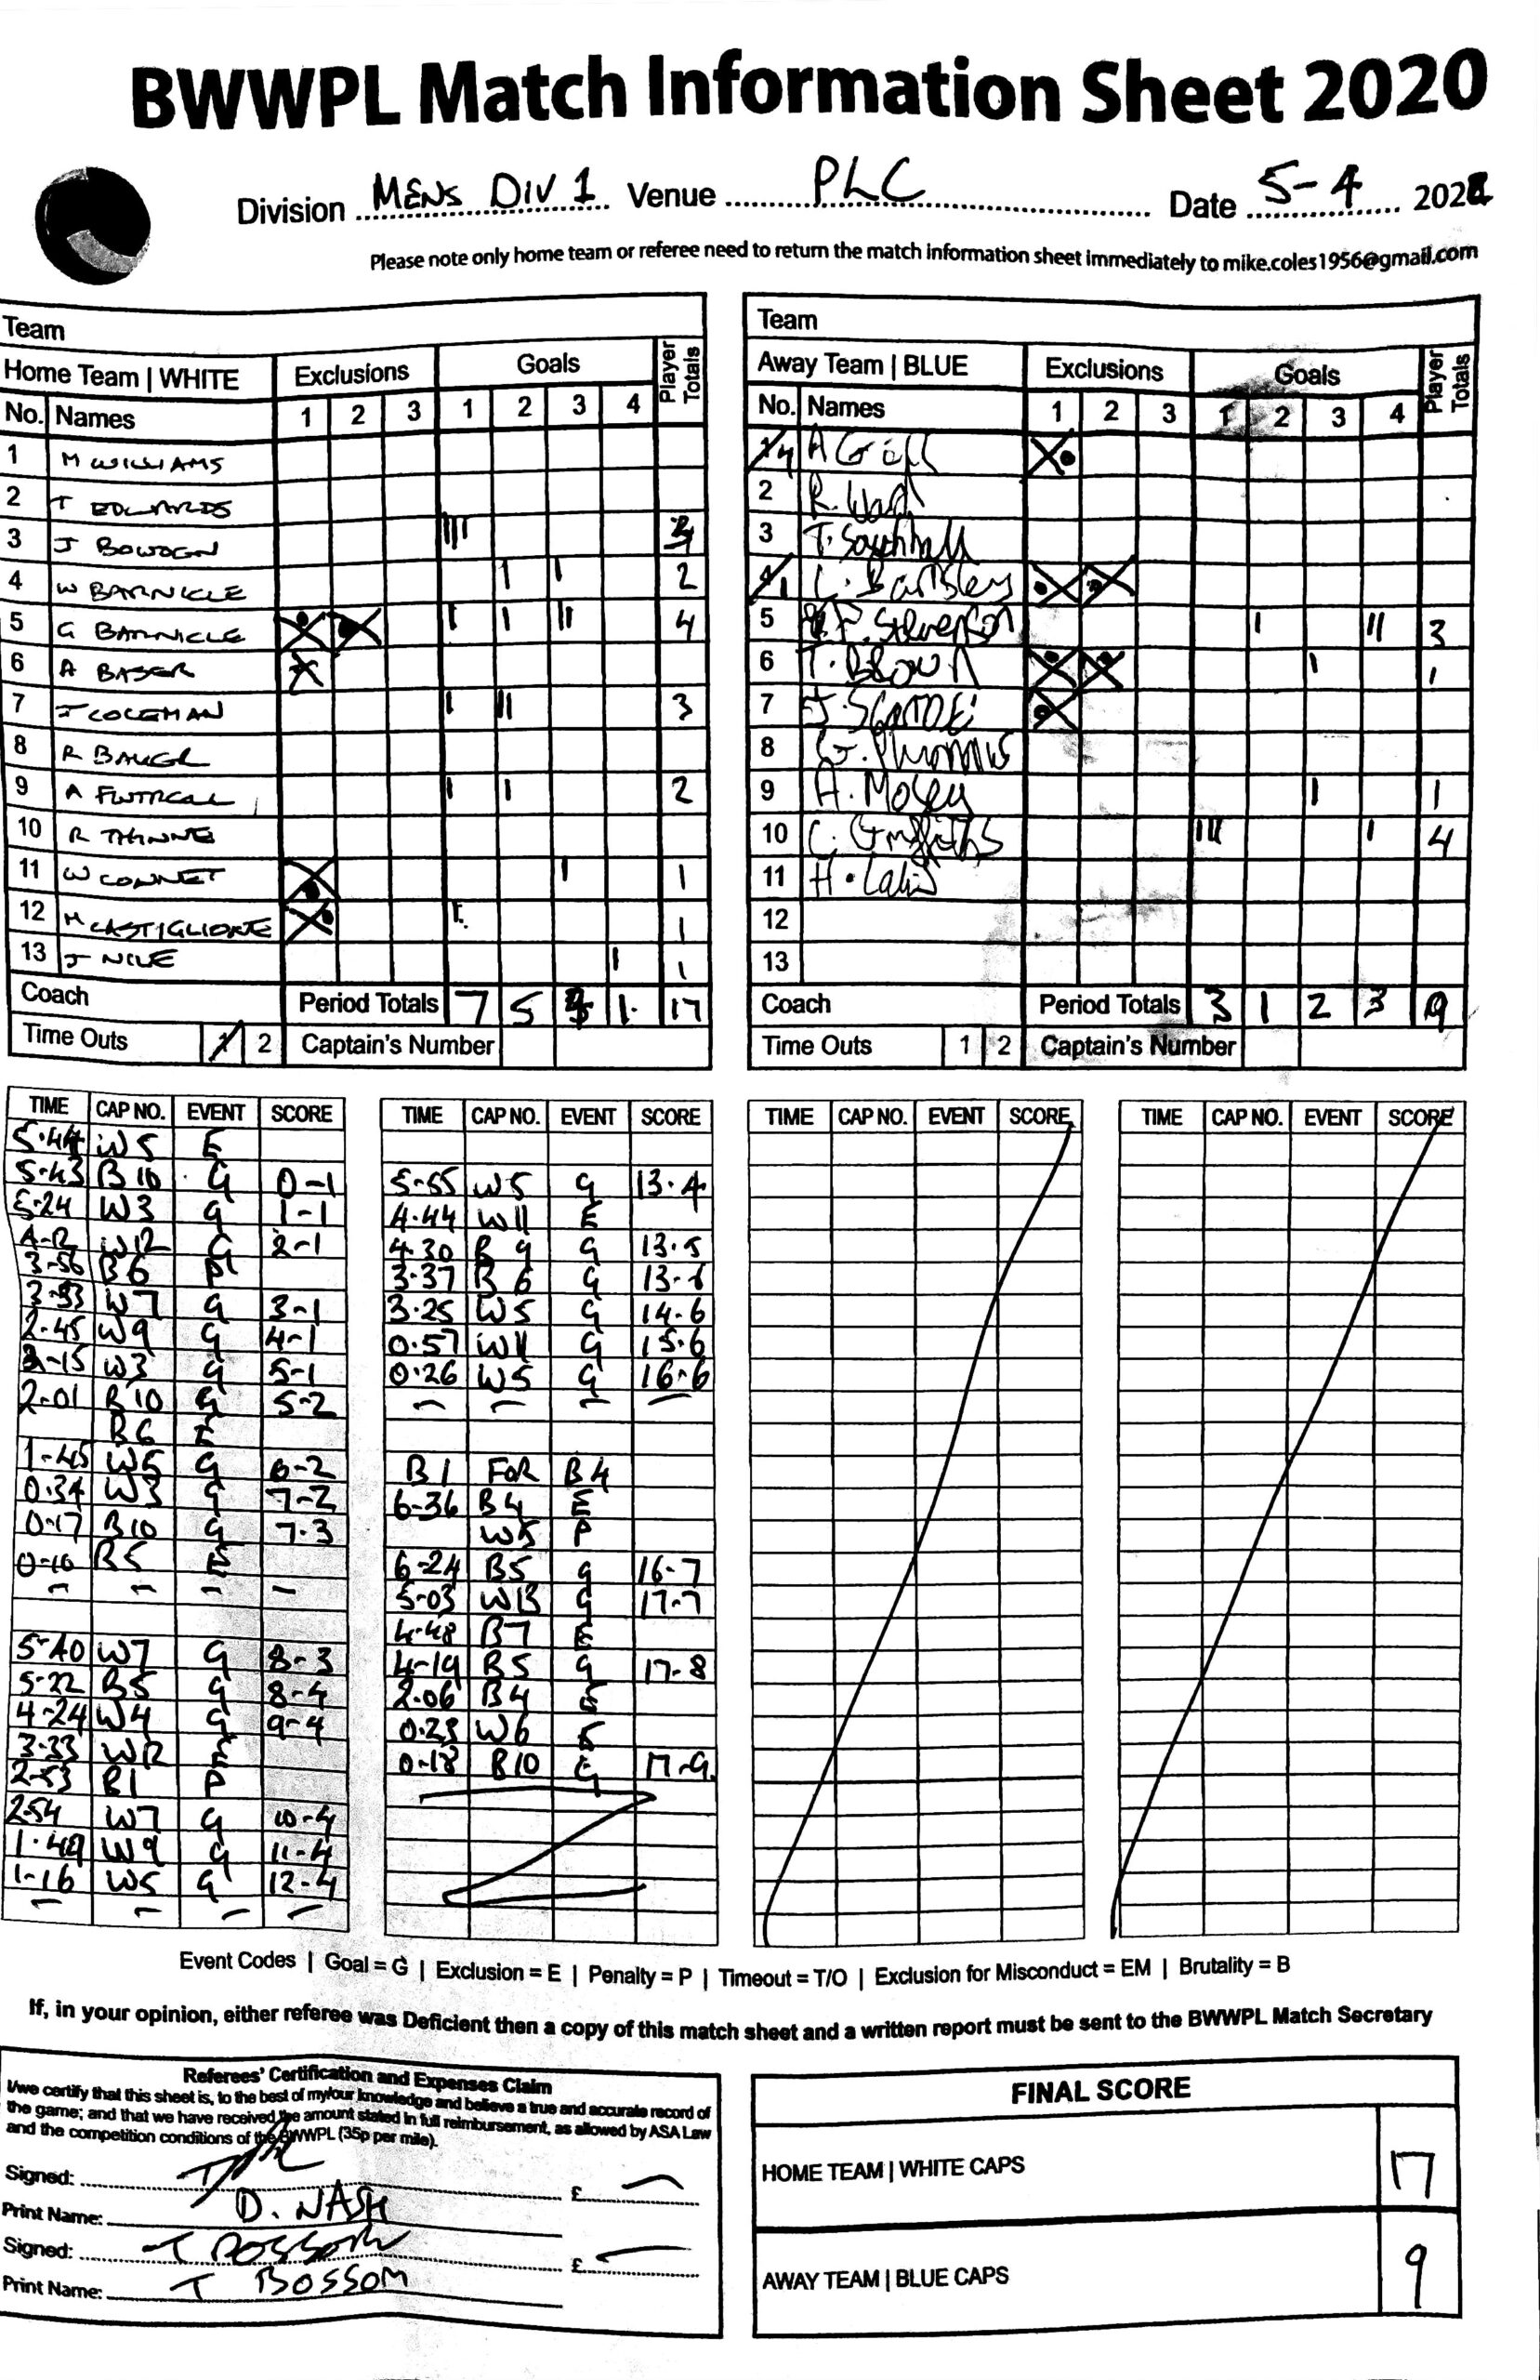 BWWPL Match Information Sheet 2020
Division MENS DIV 1 Venue PLC Date 5-4 2022
Please note only home team or referee need to return the match information sheet immediately to mike.coles1956@gmail.com
Team
Home Team | WHITE Exclusions Goals Player Totals
No. Names 1 2 3 1 2 3 4
1 M WILLIAMS
2 T EDWARDS
3 J BOWDEN III 3
4 W BARNICLE I I 2
5 G BARNICLE X X I I II 4
6 A BASER X
7 J COLEMAN I II 3
8 R BAUGL
9 A FUTRCAL I I 2
10 R THINNE
11 W CONNET X I 1
12 M CASTIGLIONE X I 1
13 J NILE I 1
Coach Period Totals 7 5 4 1 17
Time Outs 1 2 Captain's Number
Team
Away Team | BLUE Exclusions Goals Player Totals
No. Names 1 2 3 1 2 3 4
4 A Gill X
2 R. Ward
3 T. Southall
1 L. Bartsley X X
5 Stevenson I II 3
6 T. Brown X X I 1
7 J. X
8 G.
9 A. Moley I 1
10 C. Griffiths III I 4
11 H.
12
13
Coach Period Totals 3 1 2 3 9
Time Outs 1 2 Captain's Number
TIME CAP NO. EVENT SCORE
5.44 W5 E
5-43 B10 G 0-1
5-24 W3 G 1-1
4-12 W12 G 2-1
3-56 B6 P
3-53 W7 G 3-1
2.45 W9 G 4-1
2-15 W3 G 5-1
2-01 B10 G 5-2
B6 E
1-45 W5 G 6-2
0.34 W3 G 7-2
0-17 B10 G 7.3
0-10 B5 E
5-40 W7 G 8-3
5-22 B5 G 8-4
4-24 W4 G 9-4
3-33 W12 E
2-53 B1 P
2-54 W7 G 10-4
1.49 W9 G 11-4
1-16 W5 G 12-4
TIME CAP NO. EVENT SCORE
5-55 W5 G 13.4
4.44 W11 E
4.30 B9 G 13.5
3.37 B6 G 13-6
3.25 W5 G 14-6
0.57 W11 G 15.6
0.26 W5 G 16-6
B1 FOR B4
6-36 B4 E
W5 P
6-24 B5 G 16-7
5-03 W13 G 17-7
4-48 B7 E
4-19 B5 G 17-8
2.06 B4 E
0.23 W6 E
0-18 B10 G 17-9
TIME CAP NO. EVENT SCORE
TIME CAP NO. EVENT SCORE
Event Codes | Goal = G | Exclusion = E | Penalty = P | Timeout = T/O | Exclusion for Misconduct = EM | Brutality = B
If, in your opinion, either referee was Deficient then a copy of this match sheet and a written report must be sent to the BWWPL Match Secretary
Referees' Certification and Expenses Claim
I/we certify that this sheet is, to the best of my/our knowledge and believe a true and accurate record of
the game; and that we have received the amount stated in full reimbursement, as allowed by ASA Law
and the competition conditions of the BWWPL (35p per mile).
Signed: £
Print Name: D. NASH
Signed: T Bossom £
Print Name: T BOSSOM
FINAL SCORE
HOME TEAM | WHITE CAPS 17
AWAY TEAM | BLUE CAPS 9